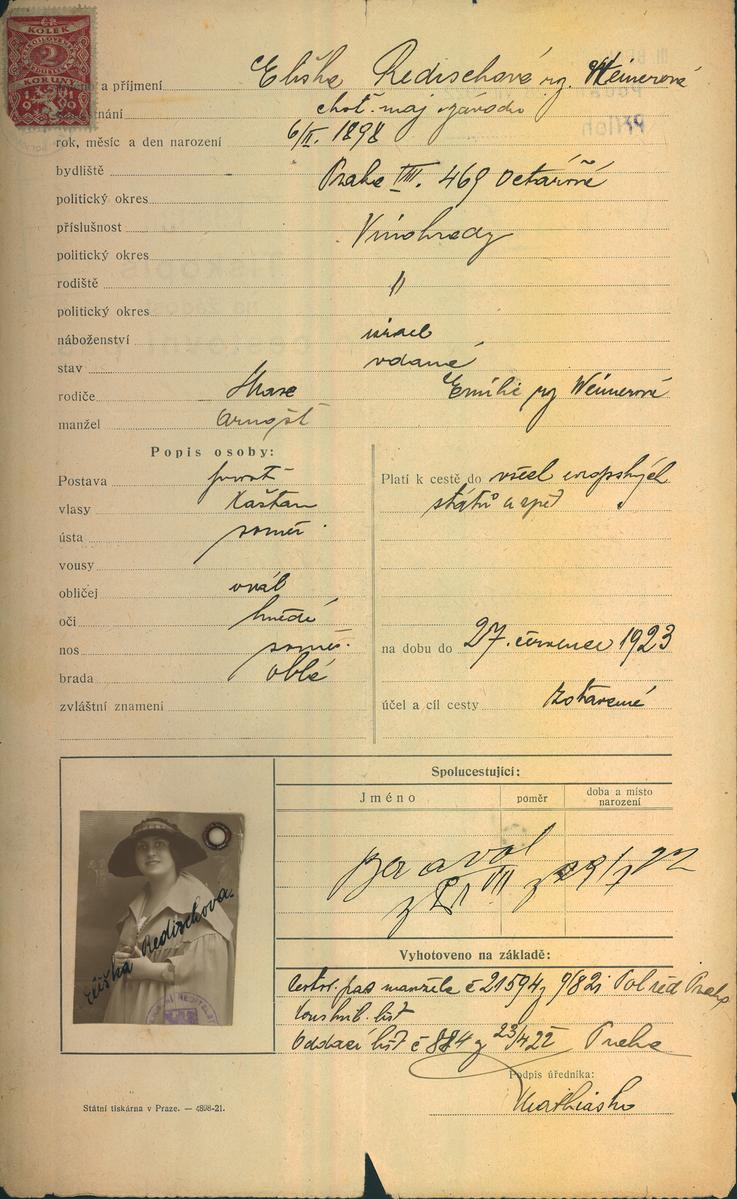 ČR.
KOLEK
2
KORUNY
1919
a příjmení Eliška Redischová roz. Weinerová
choť. maj. závodu
rok, měsíc a den narození 6/II. 1898
bydliště Praha VIII. 469
politický okres
příslušnost Vinohrady
politický okres
rodiště "
politický okres
náboženství israel
stav vdaná
rodiče Emilie roz Weinerová
manžel Arnošt
Popis osoby:
Postava prost
vlasy kaštan
ústa souměr.
vousy
obličej ovál
oči hnědé
nos souměr.
brada oblá
zvláštní znamení
Platí k cestě do všech evropských
států a zpět
na dobu do 27. července 1923
účel a cíl cesty zotavení
Spolucestující:
Jméno poměr doba a místo narození
z
Vyhotoveno na základě:
cest. pas manžela č 21594 Pol řed Praha
list
Oddací list č 884 z 23/4 22 Praha
Podpis úředníka:
Eliška Redischova.
Státní tiskárna v Praze. — 4898-21.